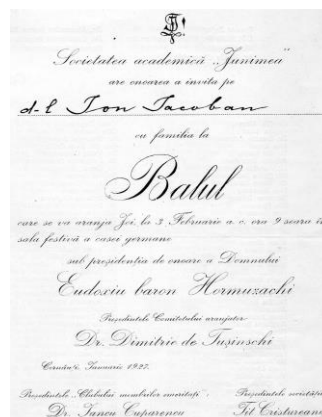 Societatea academică „Junimea”
are onoarea a invita pe
d-l Ion Iacoban
cu familia la
Balul
care se va aranja Joi la 3 Februarie a. c. ora 9 seara în
sala festivă a casei germane
sub preşidenţia de onoare a Domnului
Eudoxiu baron Hormuzachi
Preşidentele Comitetului aranjator
Dr. Dimitrie de Tuşinschi
Ianuarie 1927.
Preşidentele Clubului membrilor emeritaţi Preşidentele societăţii
Dr. Iancu Cuparencu Til Cristureanu